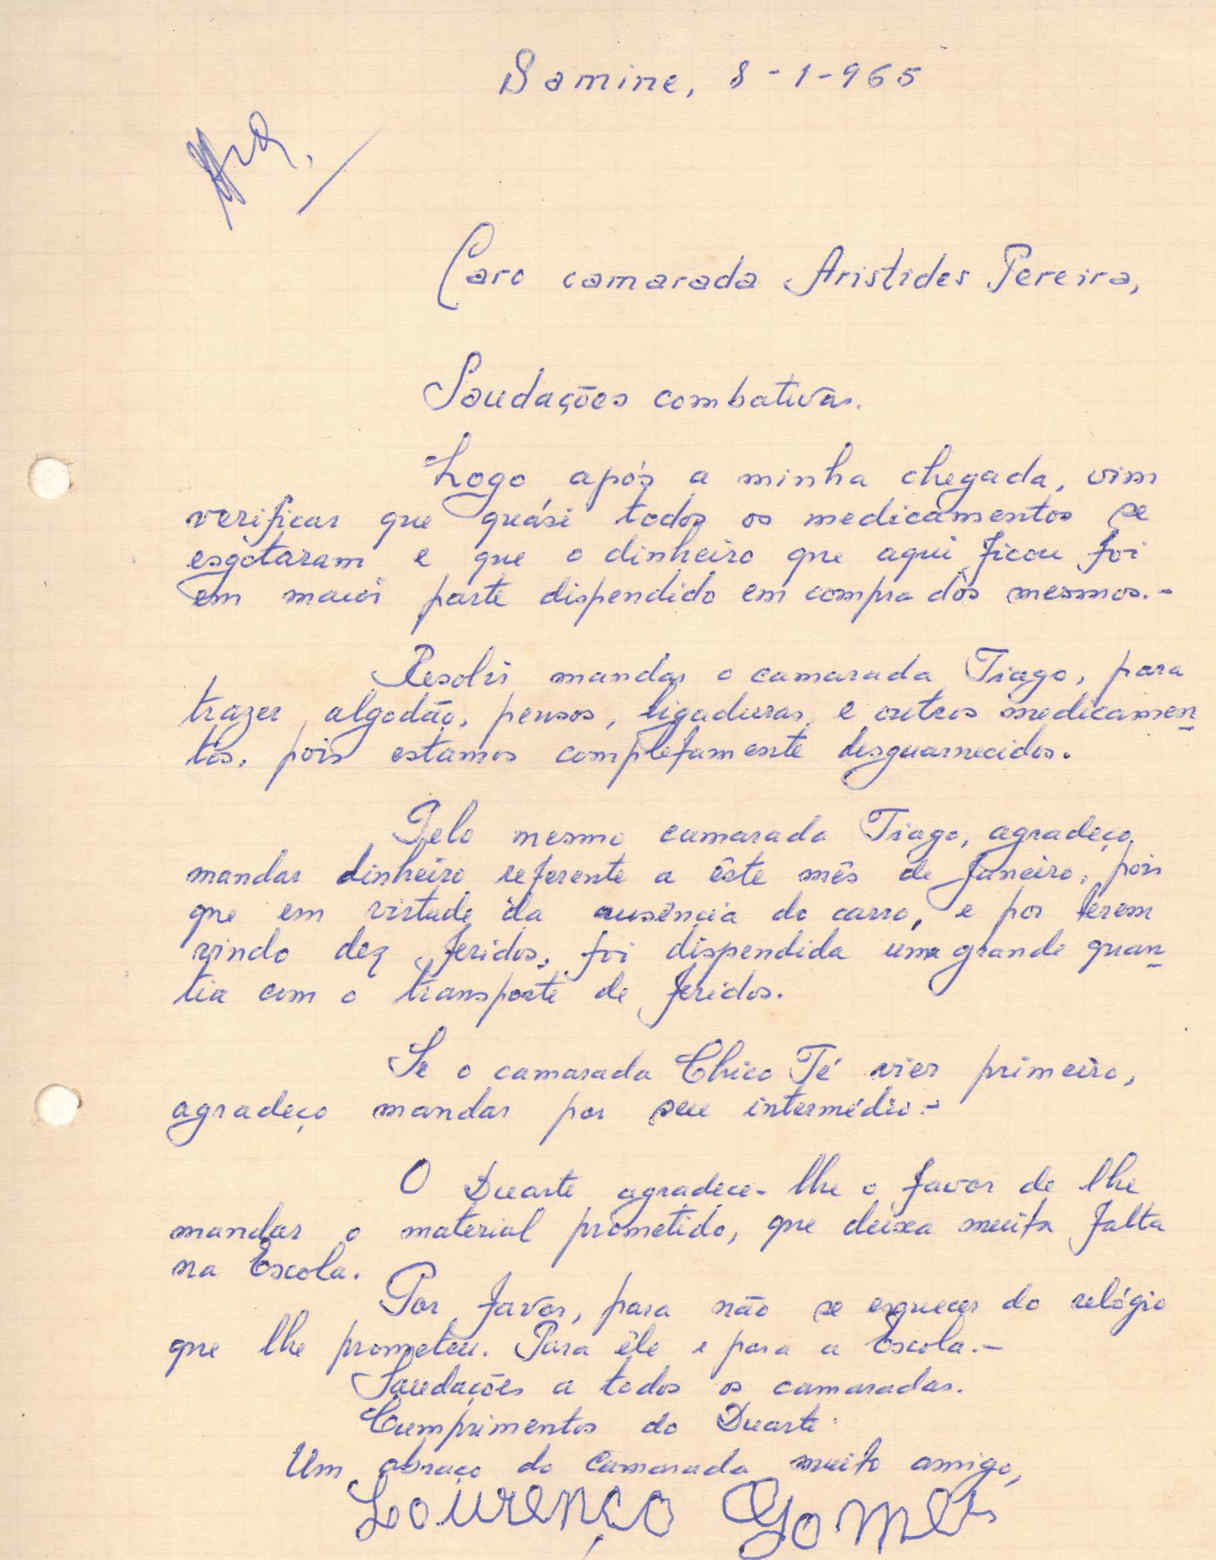 Samine, 8-1-965
Caro camarada Aristides Pereira,
Saudações combativas.
Logo após a minha chegada, vim
verificar que quási todos os medicamentos se
esgotaram e que o dinheiro que aqui ficou foi
em maior parte dispendido em compra dos mesmos.-
Resolvi mandar o camarada Tiago, para
trazer algodão, pensos, ligaduras, e outros medicamen-
tos, pois estamos completamente desguarnecidos.
Pelo mesmo camarada Tiago, agradeço,
mandar dinheiro referente a êste mês de Janeiro, pois
que em virtude da ausência do carro, e por terem
vindo dez feridos, foi dispendida uma grande quan-
tia com o transporte de feridos.
Se o camarada Chico Té vier primeiro,
agradeço mandar por seu intermédio.-
O Duarte agradece-lhe o favor de lhe
mandar o material prometido, que deixa muita falta
na Escola.
Por favor, para não se esquecer do relógio
que lhe prometeu. Para êle e para a Escola.-
Saudações a todos os camaradas.
Cumprimentos do Duarte.
Um abraço do camarada muito amigo,
Lourenço Gomes